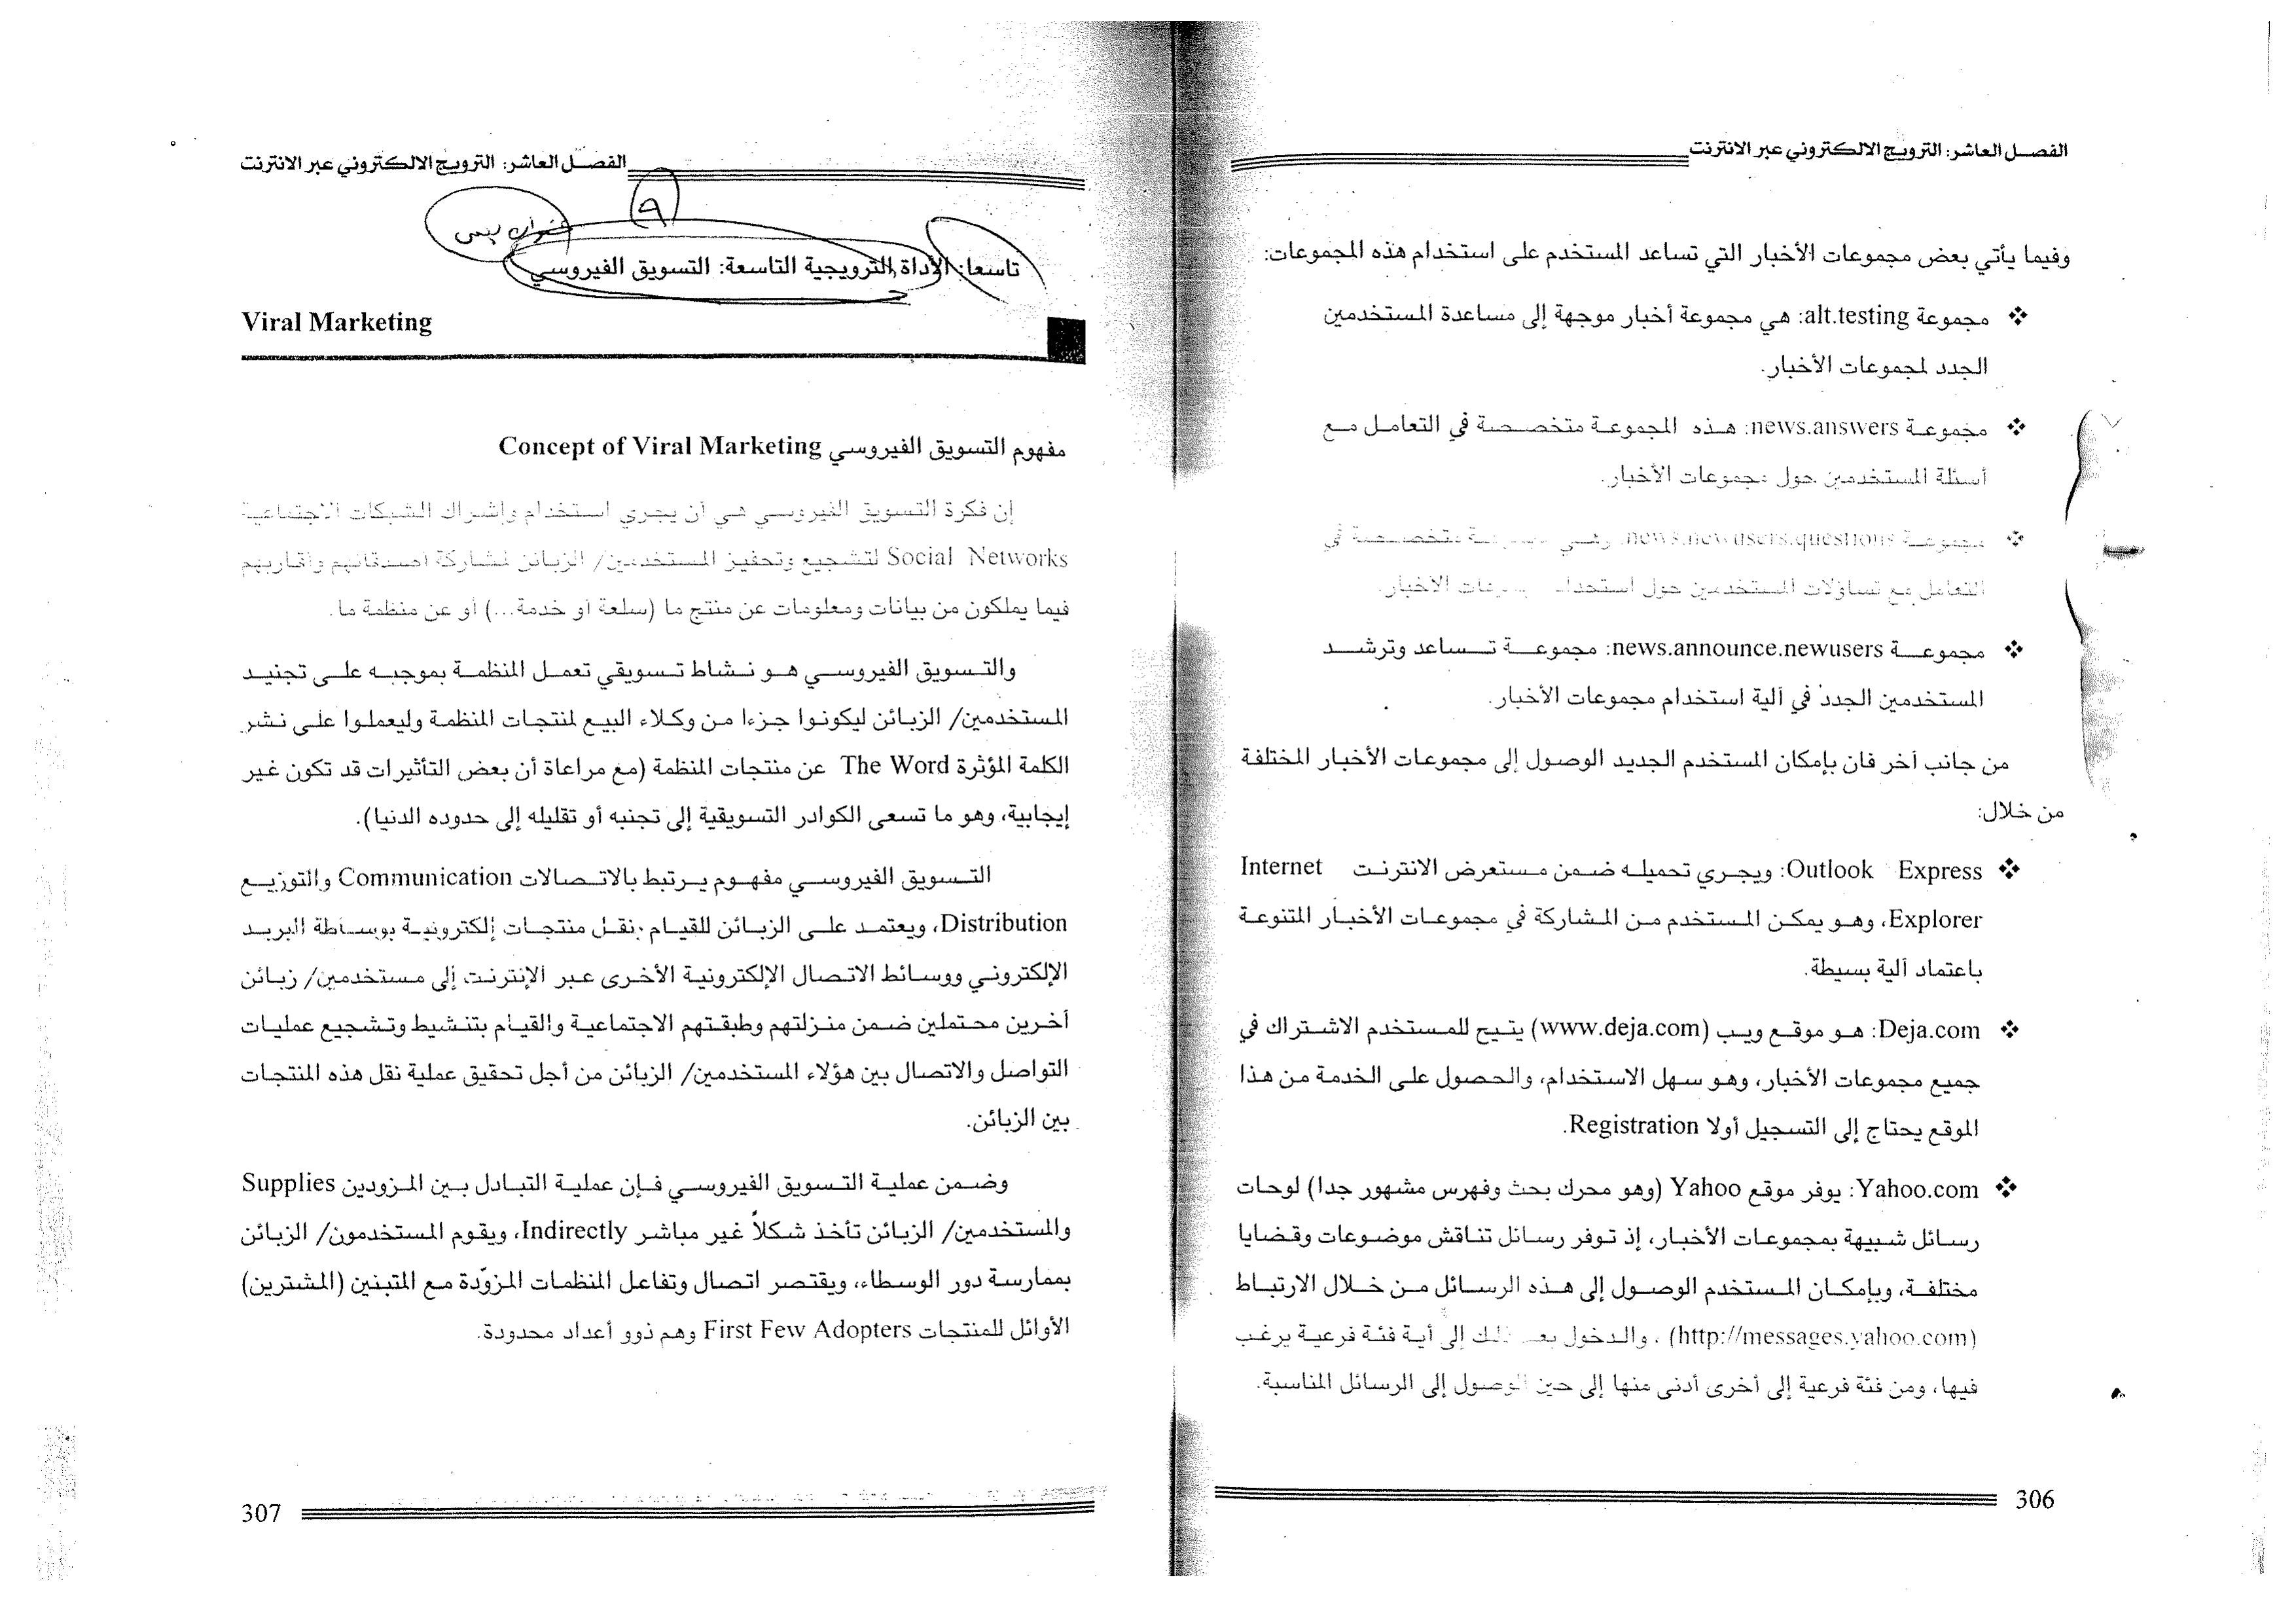 الفصل العاشر: الترويج الالكتروني عبر الانترنت
وفيما يأتي بعض مجموعات الأخبار التي تساعد المستخدم على استخدام هذه المجموعات:
❖ مجموعة alt.testing: هي مجموعة أخبار موجهة إلى مساعدة المستخدمين
الجدد لمجموعات الأخبار.
❖ مجموعة news.answers: هذه المجموعة متخصصة في التعامل مع
أسئلة المستخدمين حول مجموعات الأخبار.
❖ مجموعة news.newusers.questions: وهي مجموعة متخصصة في
التعامل مع تساؤلات المستخدمين حول استخدام مجموعات الأخبار.
❖ مجموعة news.announce.newusers: مجموعة تساعد وترشد
المستخدمين الجدد في آلية استخدام مجموعات الأخبار.
من جانب آخر فان بإمكان المستخدم الجديد الوصول إلى مجموعات الأخبار المختلفة
من خلال:
❖ Outlook Express: ويجري تحميله ضمن مستعرض الانترنت Internet
Explorer، وهو يمكن المستخدم من المشاركة في مجموعات الأخبار المتنوعة
باعتماد آلية بسيطة.
❖ Deja.com: هو موقع ويب (www.deja.com) يتيح للمستخدم الاشتراك في
جميع مجموعات الأخبار، وهو سهل الاستخدام، والحصول على الخدمة من هذا
الموقع يحتاج إلى التسجيل أولا Registration.
❖ Yahoo.com: يوفر موقع Yahoo (وهو محرك بحث وفهرس مشهور جدا) لوحات
رسائل شبيهة بمجموعات الأخبار، إذ توفر رسائل تناقش موضوعات وقضايا
مختلفة، وبإمكان المستخدم الوصول إلى هذه الرسائل من خلال الارتباط
(http://messages.yahoo.com) ، والدخول بعد ذلك إلى أية فئة فرعية يرغب
فيها، ومن فئة فرعية إلى أخرى أدنى منها إلى حين الوصول إلى الرسائل المناسبة.
306
الفصل العاشر: الترويج الالكتروني عبر الانترنت
٩
تاسعا: الأداة الترويجية التاسعة: التسويق الفيروسي
Viral Marketing
مفهوم التسويق الفيروسي Concept of Viral Marketing
إن فكرة التسويق الفيروسي هي أن يجري استخدام وإشراك الشبكات الاجتماعية
Social Networks لتشجيع وتحفيز المستخدمين/ الزبائن لمشاركة أصدقائهم وأقاربهم
فيما يملكون من بيانات ومعلومات عن منتج ما (سلعة أو خدمة...) أو عن منظمة ما.
والتسويق الفيروسي هو نشاط تسويقي تعمل المنظمة بموجبه على تجنيد
المستخدمين/ الزبائن ليكونوا جزءا من وكلاء البيع لمنتجات المنظمة وليعملوا على نشر
الكلمة المؤثرة The Word عن منتجات المنظمة (مع مراعاة أن بعض التأثيرات قد تكون غير
إيجابية، وهو ما تسعى الكوادر التسويقية إلى تجنبه أو تقليله إلى حدوده الدنيا).
التسويق الفيروسي مفهوم يرتبط بالاتصالات Communication والتوزيع
Distribution، ويعتمد على الزبائن للقيام بنقل منتجات إلكترونية بوساطة البريد
الإلكتروني ووسائط الاتصال الإلكترونية الأخرى عبر الإنترنت إلى مستخدمين/ زبائن
آخرين محتملين ضمن منزلتهم وطبقتهم الاجتماعية والقيام بتنشيط وتشجيع عمليات
التواصل والاتصال بين هؤلاء المستخدمين/ الزبائن من أجل تحقيق عملية نقل هذه المنتجات
بين الزبائن.
وضمن عملية التسويق الفيروسي فإن عملية التبادل بين المزودين Supplies
والمستخدمين/ الزبائن تأخذ شكلاً غير مباشر Indirectly، ويقوم المستخدمون/ الزبائن
بممارسة دور الوسطاء، ويقتصر اتصال وتفاعل المنظمات المزوّدة مع المتبنين (المشترين)
الأوائل للمنتجات First Few Adopters وهم ذوو أعداد محدودة.
307